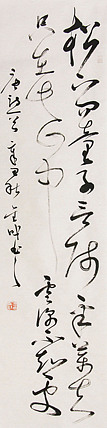 松下問童子言師采藥去
只在此山中雲深不知處
唐詩
秋